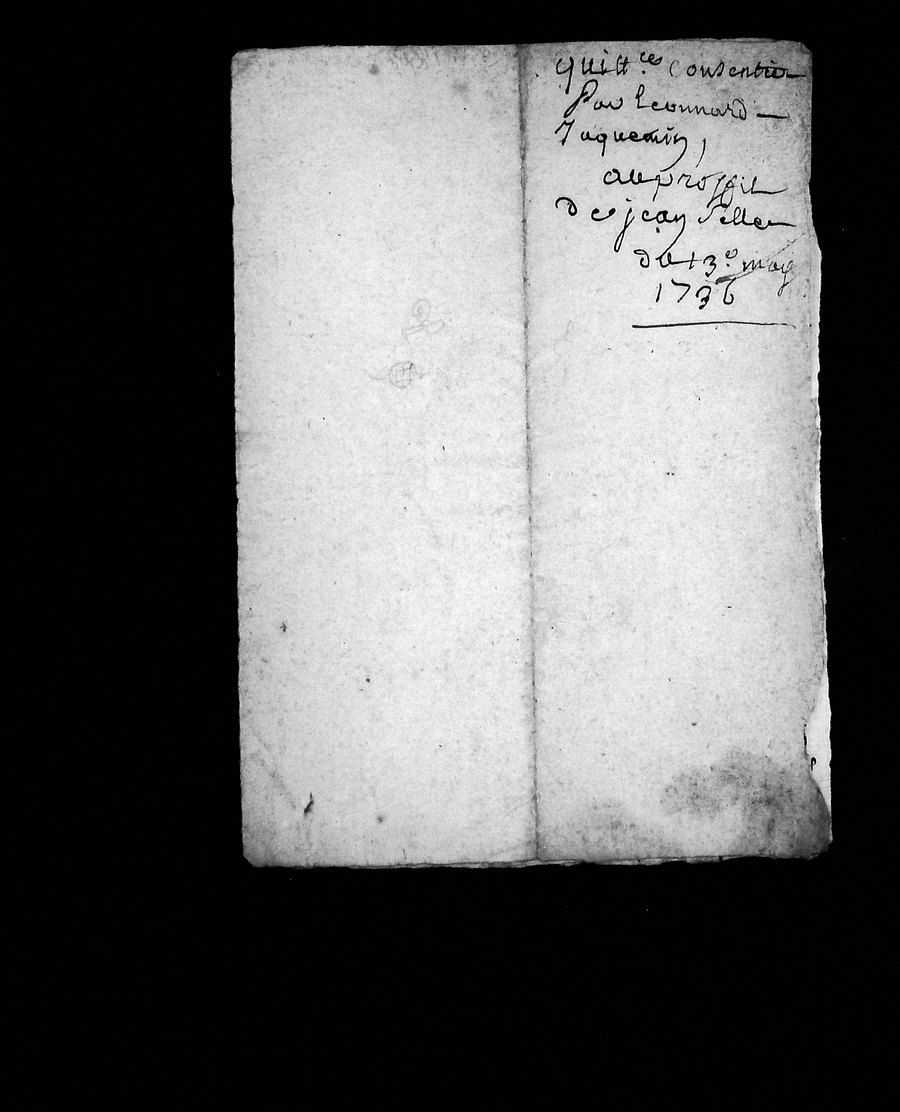 quitt.ces consentier
Par Leonnard
Jaquemin,
au proffit
De jean Peller
du 13e may
1736